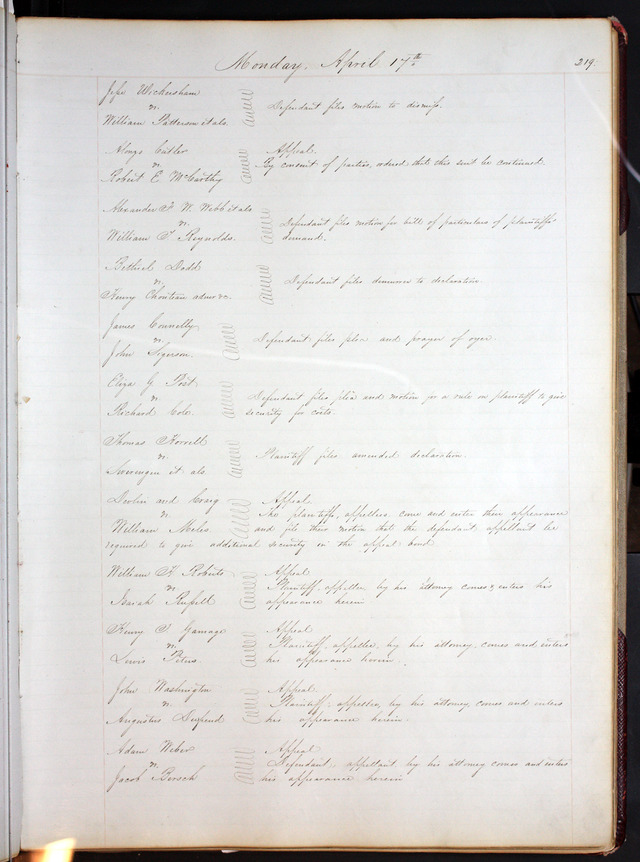 Monday, April 17th 219.
Jesse Wickersham
vs.
William Patterson et als. Defendant files motion to dismiss.
Alonzo Cutler Appeal.
vs. By consent of parties, ordered that this suit be continued.
Robert E. McCarthy
Alexander F. W. Webb et als
vs. Defendant files motion for bill of particulars of plaintiffs
William S. Reynolds. demand.
Bethiel Dodd
vs. Defendant files demurrer to declaration.
Henry Chouteau admr &c.
James Connelly
vs. Defendant files plea and prayer of oyer.
John Sigerson.
Eliza G. Post
vs. Defendant files plea and motion for a rule on plaintiff to give
Richard Cole. security for costs.
Thomas
vs. Plaintiff files amended declaration.
Swearengen et als.
Devlin and Craig Appeal.
vs. The plaintiffs, appellees, come and enter their appearance
William and file their motion that the defendant, appellant be
required to give additional security in the appeal bond.
William H. Roberts Appeal
vs. Plaintiff, appellee, by his attorney comes & enters his
Isaiah Russell appearance herein
Henry S. Gamage Appeal
vs. Plaintiff, appellee, by his attorney comes and enters
Lewis Peters. his appearance herein.
John Washington Appeal.
vs. Plaintiff, appellee, by his attorney comes and enters
Augustus his appearance herein.
Adam Weber Appeal
vs. Defendant, appellant, by his attorney comes and enters
Jacob Bersch his appearance herein